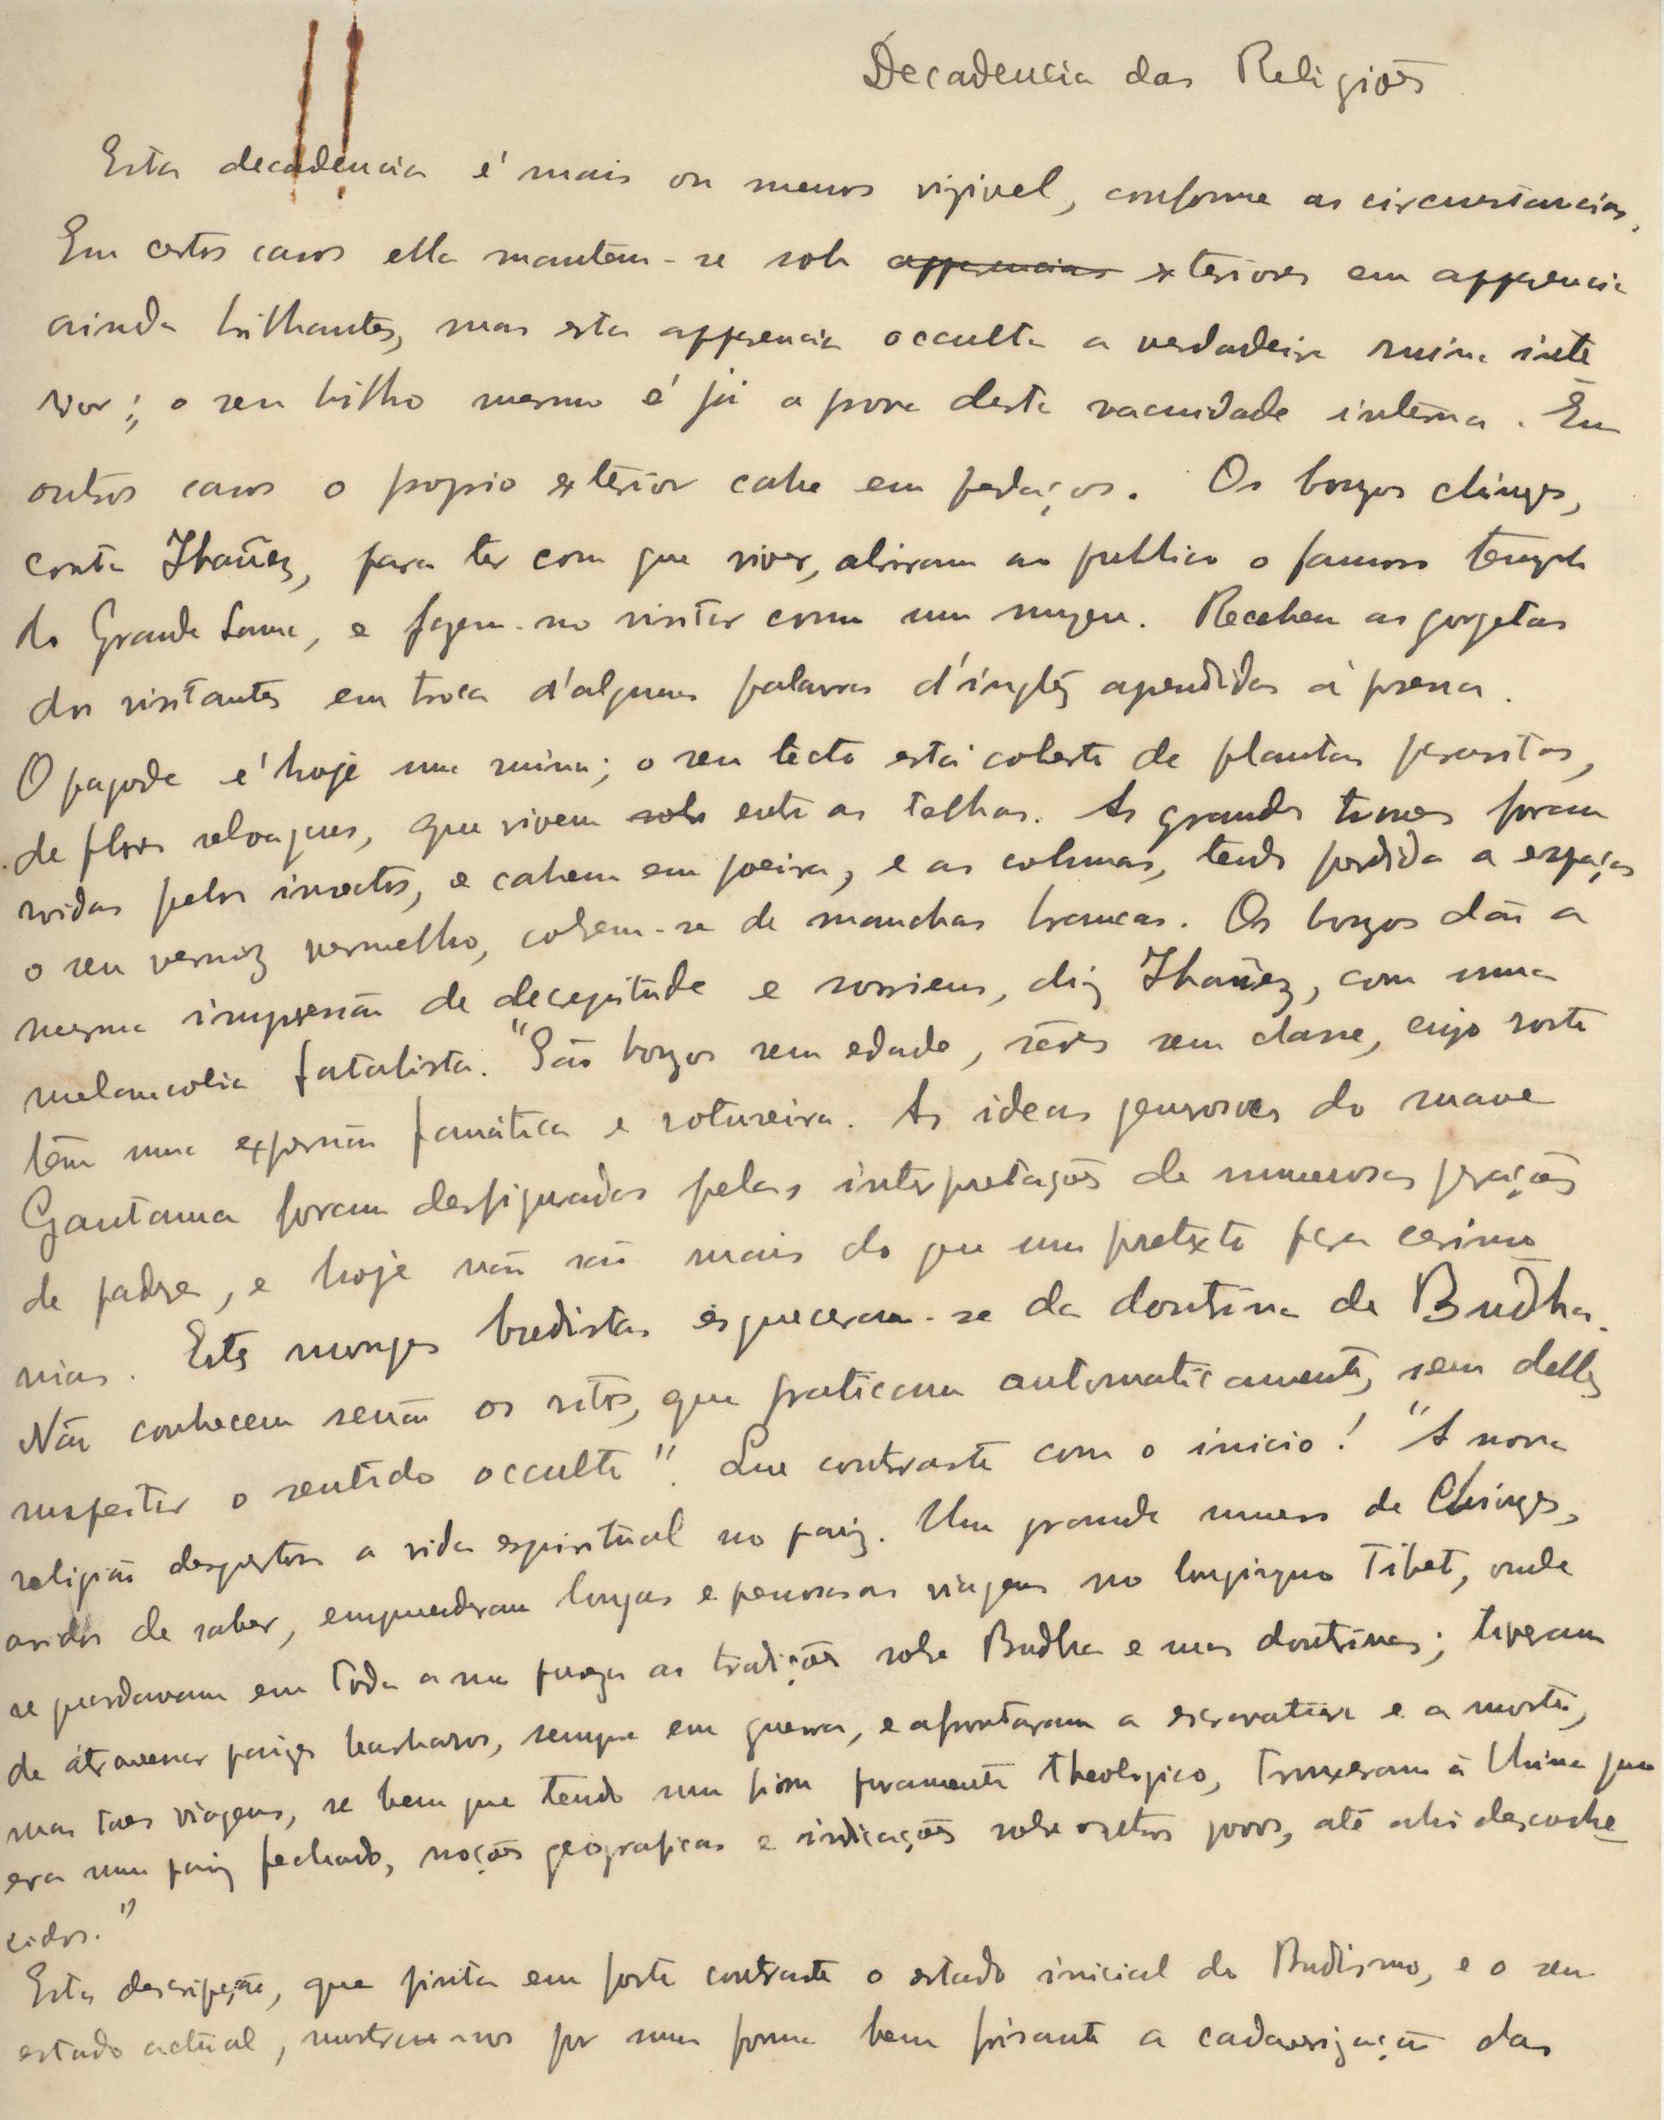 Decadencia das Religiões
Esta decadencia é mais ou menos vizivel, conforme as circunstancias.
Em certos casos ella mantem-se sob apparencias exteriores em apparencia
ainda brilhantes, mas esta apparencia occulta a verdadeira ruina inte
rior; o seu brilho mesmo é já a prova desta vacuidade interna. Em
outros casos o proprio exterior cahe em pedaços. Os bonzos chinezes,
conta Ibañez, para ter com que viver, abriram ao publico o famoso templo
do Grande Lama, e fazem-no visitar como um muzeu. Recebem as gorgetas
dos visitantes em troca d'algumas palavras d'inglêz aprendidas à pressa.
O pagode é hoje uma ruina; o seu tecto está coberto de plantas parasitas,
de flores selvagens, que vivem sobre entre as telhas. As grandes traves foram
roidas pelos insectos, e cahem em poeira, e as columnas, tendo perdido a espaços
o seu verniz vermelho, cobrem-se de manchas brancas. Os bonzos dão a
mesma impressão de decrepitude e sorriem, diz Ibañez, com uma
melancolia fatalista. "São bonzos sem edade, sêres sem classe, cujo rosto
têm uma expressão fanática e sotureira. As ideas generosas do suave
Gautama foram desfiguradas pelas interpretações de numerosas gerações
de padres, e hoje não são mais do que um pretexto para cerimo
nias. Estes monges budistas esqueceram-se da doutrina de Budha.
Não conhecem senão os ritos, que praticam automaticamente, sem delles
suspeitar o sentido occulto". Que contraste com o inicio! "A nova
religião despertou a vida espiritual no paiz. Um grande numero de Chinezes,
avidos de saber, emprenderam longas e penosas viagens no longinquo Tibet, onde
se guardavam em toda a sua pureza as tradições sobre Budha e suas doutrinas; tiveram
de atravessar paizes barbaros, sempre em guerra, e afrontaram a escravatura e a morte,
mas taes viagens, se bem que tendo um fim puramente theologico, trouxeram à China que
era um paiz fechado, noções geograficas e indicações sobre outros povos, até ahi desconhe
cidos."
Esta descripção, que pinta em forte contraste o estado inicial do Budismo, e o seu
estado actual, mostram-nos por uma forma bem frisante a cadaverização das